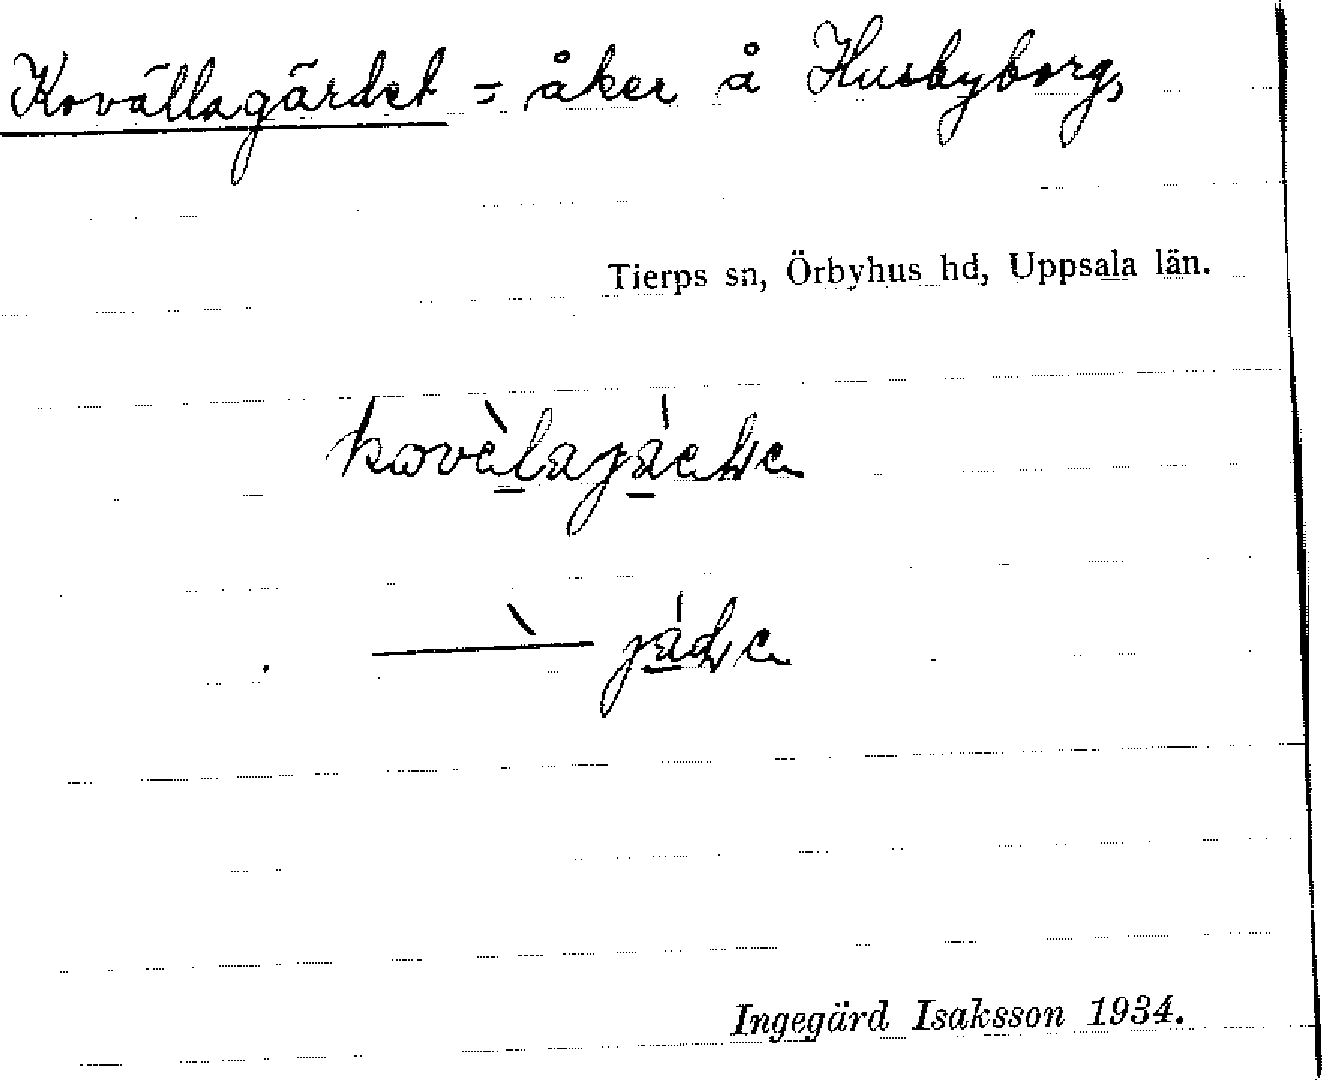 Kovällagärdet = åker å Husbyborg,
Tierps sn, Örbyhus hd, Uppsala län.
Ingegärd Isaksson 1934.